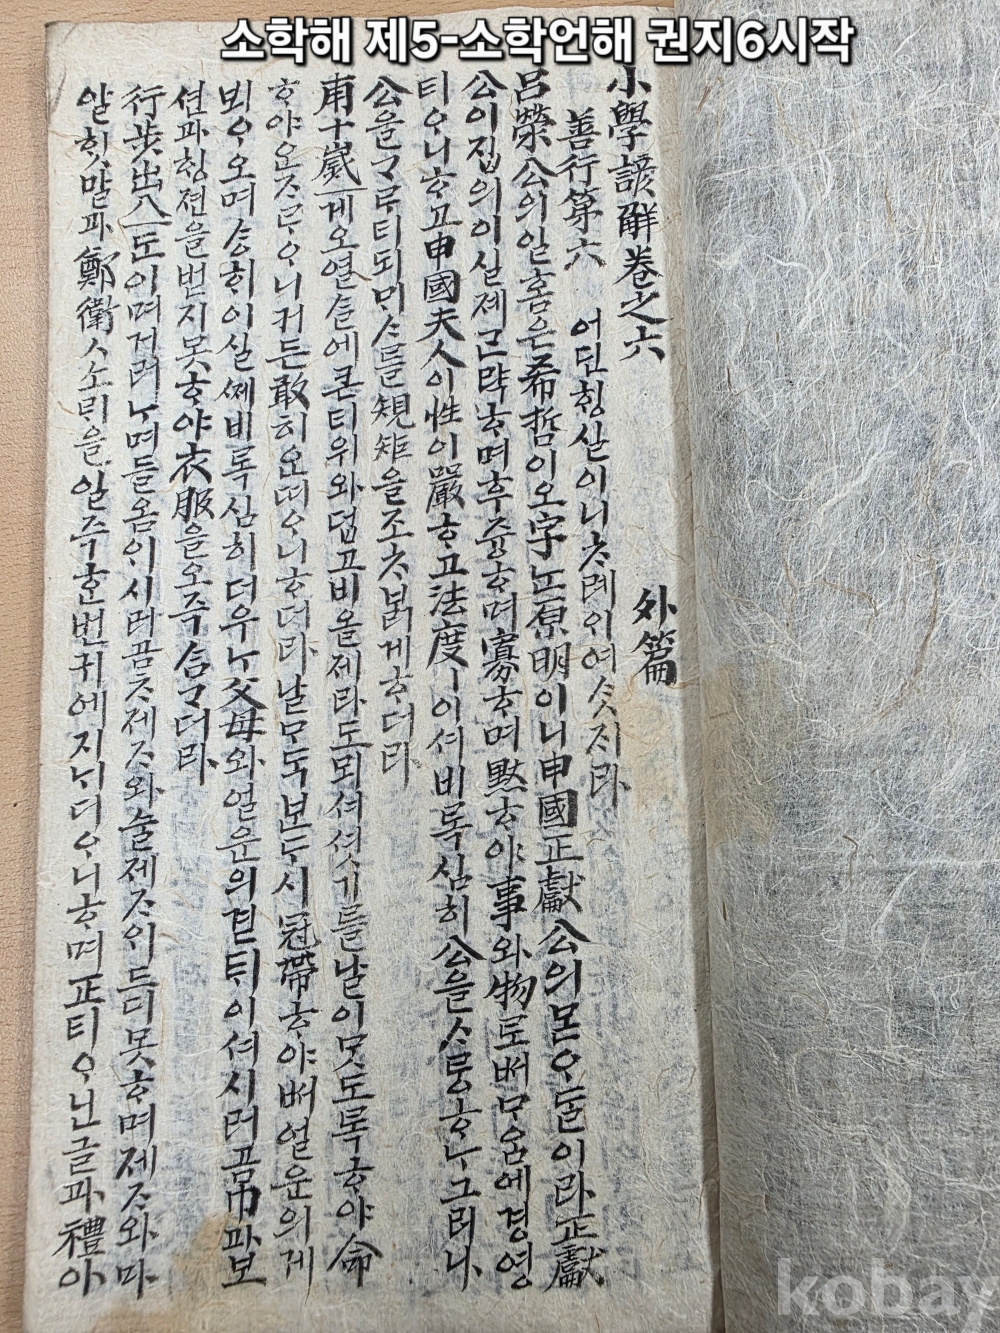 소학해 제5-소학언해 권지6시작
小學諺解卷之六 外篇
善行第六 어딘ᄒᆡᆼ실이니ᄎᆞ례예여ᄉᆞᆺ지라
呂榮公의일홈은希哲이오字ᄂᆞᆫ原明이니申國正獻公의ᄆᆞᆮᄋᆞᄃᆞᆯ이라正獻
公이집의이실제ᄀᆞᆫ략ᄒᆞ며후즁ᄒᆞ며寡ᄒᆞ며黙ᄒᆞ야事와物로ᄡᅥᄆᆞᄋᆞᆷ에경영
티ᄋᆞ니ᄒᆞ고申國夫人이性이嚴ᄒᆞ고法度ㅣ이셔비록심히公을ᄉᆞ랑ᄒᆞᄂᆞ그러나
公을ᄀᆞᄅᆞ티되ᄆᆡᄉᆞ를規矩을조ᄎᆞᄇᆞᆰ게ᄒᆞ더라
甫十歲ㅣ게오열ᄉᆞᆯ에큰티위와덥고비올제라도뫼셔셧기를날이ᄆᆞᆺ도록ᄒᆞ야命
ᄒᆞ야오ᄌᆞᄅᆞᄋᆞ니커든敢히오ᄯᅥᄋᆞ니ᄒᆞ더라날ᄆᆞ독보ᄃᆞ시冠帶ᄒᆞ야ᄡᅥ얼운의게
뵈ᄋᆞ오며ᄉᆞᆼ히이실ᄶᅦ비록심히더우ᄂᆞ父母와얼운의견ᄐᆡ이셔시러곰巾과보
션과ᄒᆡᆼ젼을번지못ᄒᆞ야衣服을오즉ᄉᆞᆷᄀᆞ더라
行步出入ᄒᆞ되이며거러ᄂᆞ며들옴이시러곰ᄎᆞ제ᄌᆞ와술제ᄌᆞᄋᆡ드디못ᄒᆞ며제ᄌᆞ와마
알힛말과鄭衛ㅅ소ᄅᆡ을일즉ᄒᆞᆫ번귀에지ᄂᆡ디ᄋᆞ니ᄒᆞ며正티ᄋᆞ닌글과禮아
kobay